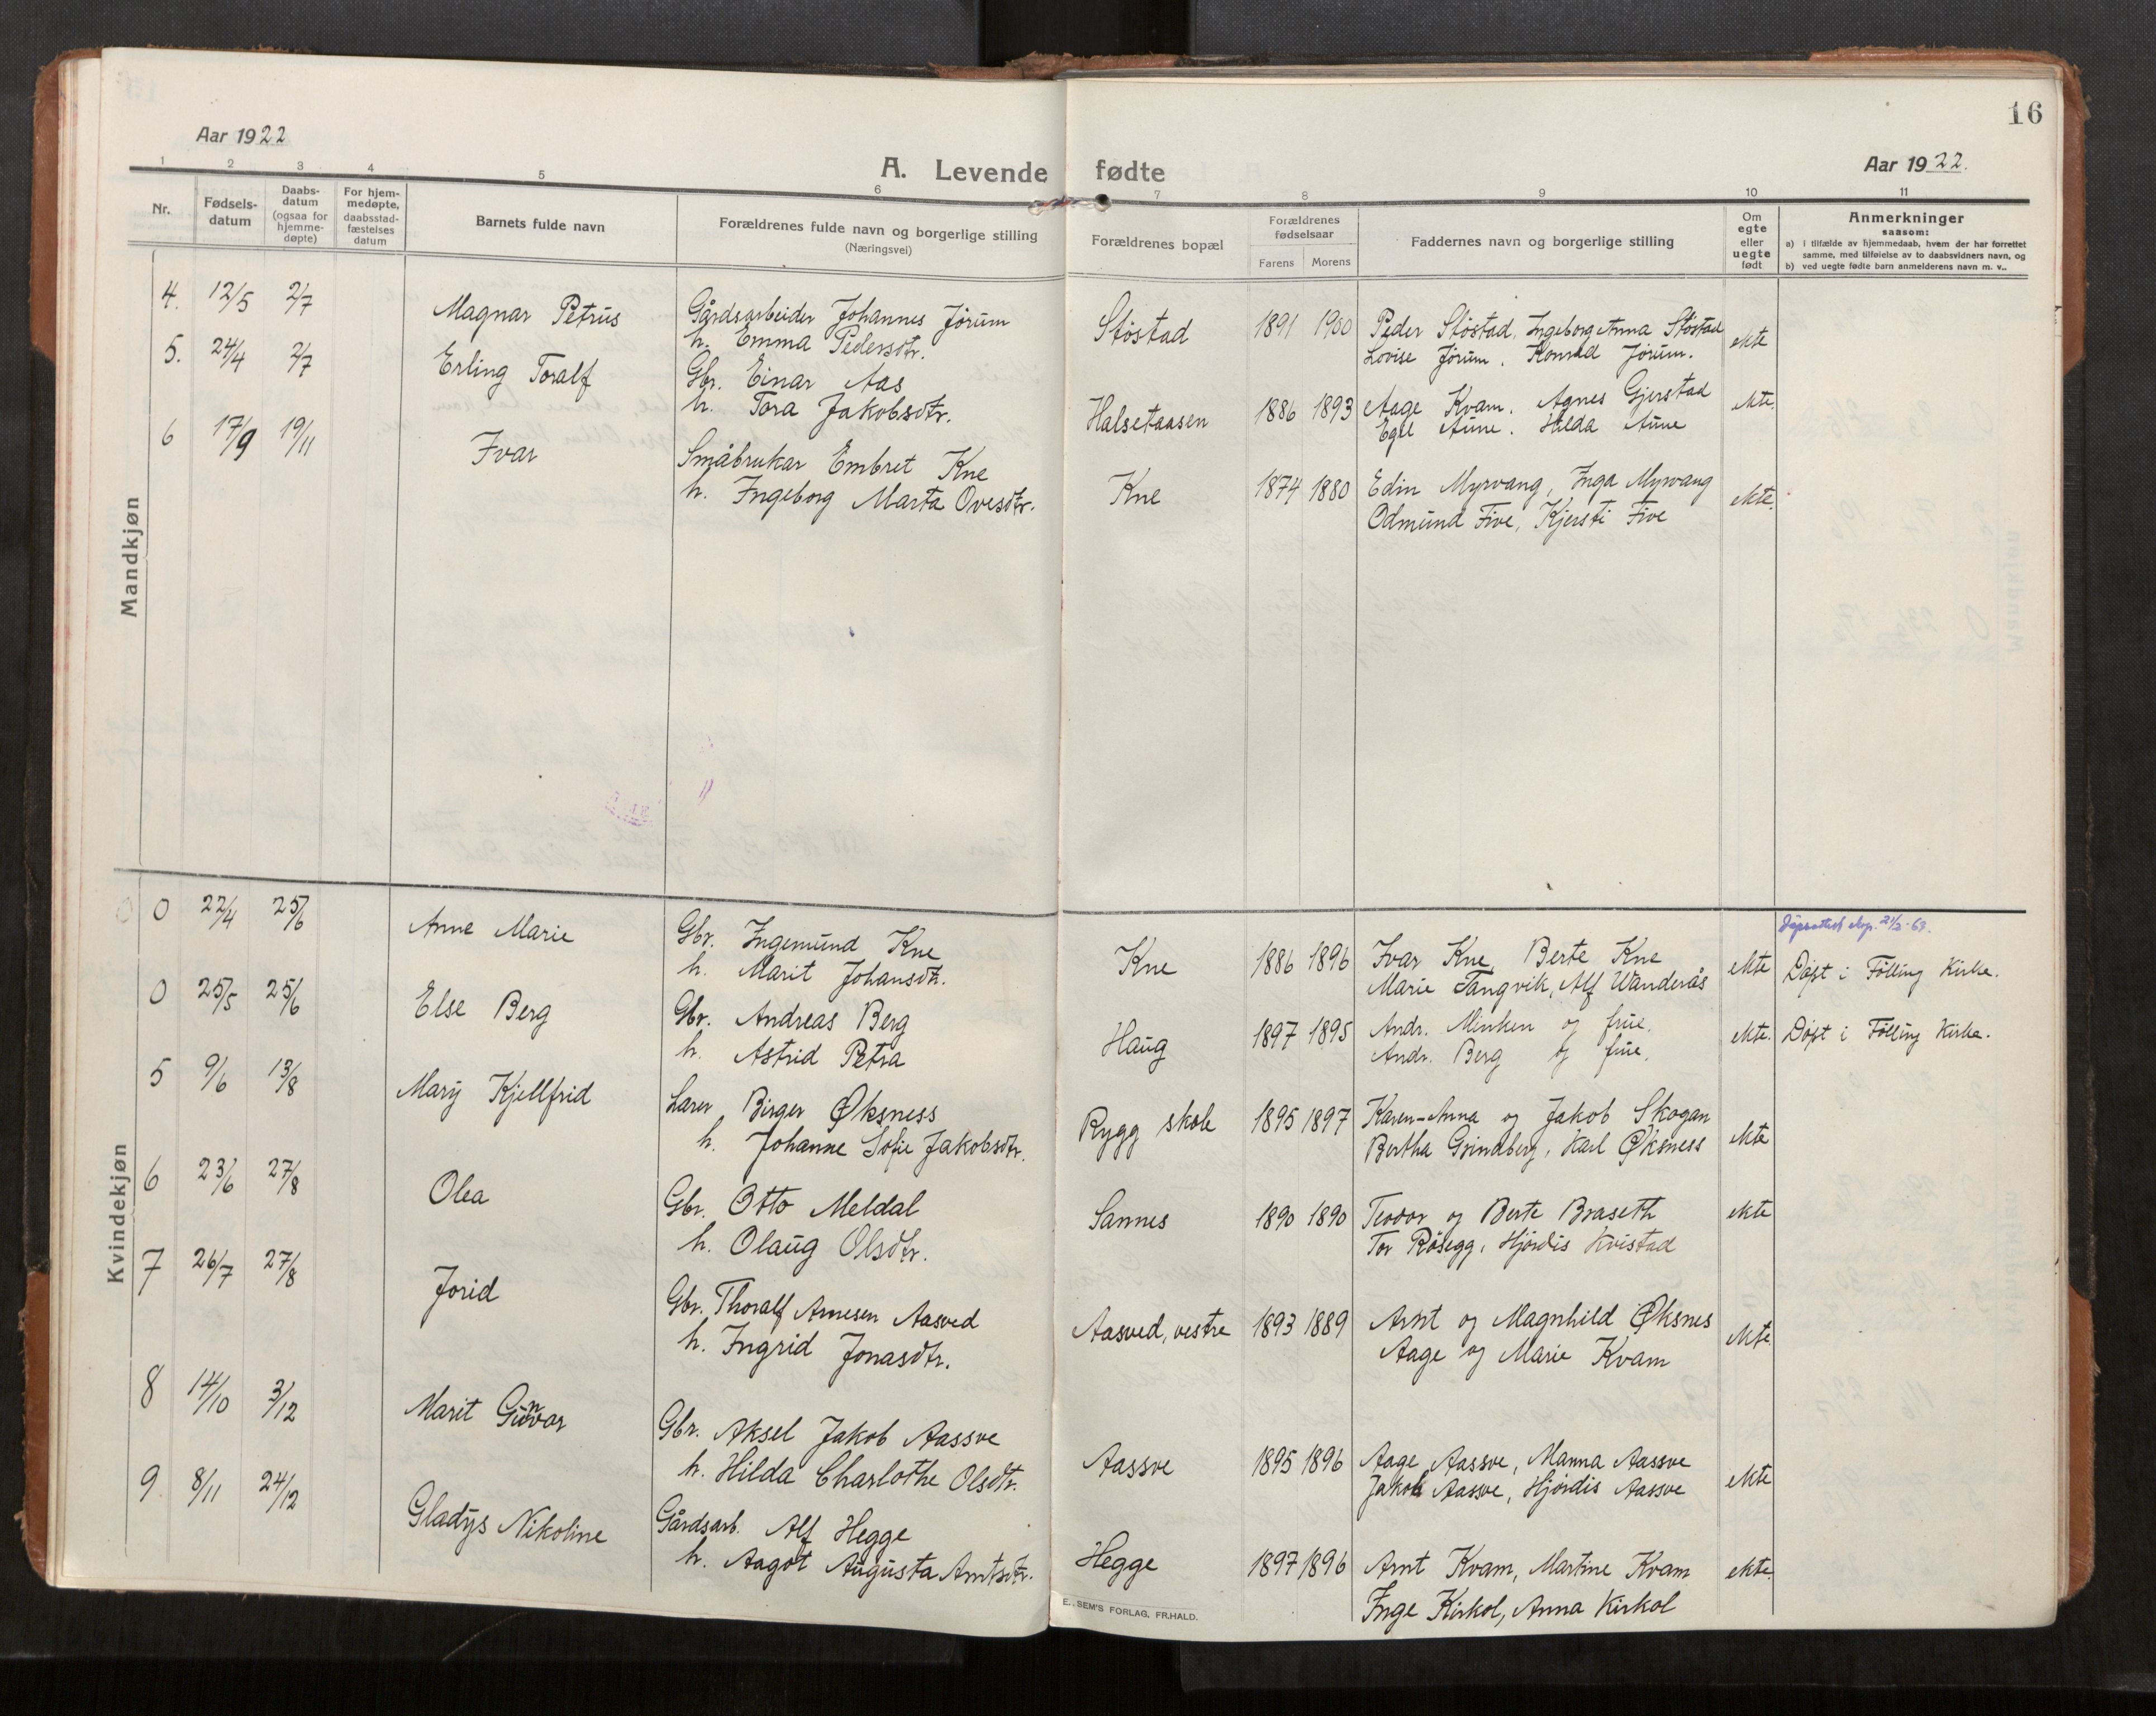 16
Aar 1922
A. Levende fødte
Aar 1922.
1 2 3 4 5 6 7 8 9 10 11
Nr.
Fødsels-
datum
Daabs-
datum
(ogsaa for
hjemme-
døpte)
For hjem-
medøpte,
daabsstad-
fæstelses
datum
Barnets fulde navn
Forældrenes fulde navn og borgerlige stilling
(Næringsvei)
Forældrenes bopæl
Forældrenes
fødselsaar
Farens Morens
Faddernes navn og borgerlige stilling
Om
egte
eller
uegte
født
Anmerkninger
saasom:
a) i tilfælde av hjemmedaab, hvem der har forrettet
samme, med tilføielse av to daabsvidners navn, og
b) ved uegte fødte barn anmelderens navn m. v..
Mandkjøn
4. 12/5 2/7 Magnar Petrus Gårdsarbeider Johannes Jørum Støstad 1891 1900 Peder Støstad, Ingeborg Anna Støstad ekte
h. Emma Pedersdtr. Lovise Jørum. Konrad Jørum.
5. 24/4 2/7 Erling Toralf Gbr. Einar Aas Halsetaasen 1886 1893 Aage Kvam. Agnes Gjerstad ekte.
h. Tora Jakobsdtr. Egil Aune. Hilda Aune
6 17/9 19/11 Ivar Småbrukar Embret Kne Kne 1874 1880 Edin Myrvang, Inga Myrvang ekte.
h. Ingeborg Marta Ovesdtr. Odmund Five, Kjersti Five
Kvindekjøn
21/2-63.
0 22/4 25/6 Anne Marie Gbr. Ingemund Kne Kne 1886 1896 Ivar Kne Berte Kne ekte Døpt i Følling Kirke.
h. Marit Johansdtr. Marie Tangvik, Alf Wanderås
0 25/5 25/6 Else Berg Gbr. Andreas Berg Haug 1897 1895 Andr. Minken og frue. ekte. Døpt i Følling Kirke.
h. Astrid Petra Andr. Berg og frue.
5 9/6 13/8 Mary Kjellfrid Lærer Birger Øksness Rygg skole 1895 1897 Karen-Anna og Jakob Skogan ekte
h. Johanne Sofie Jakobsdtr. Bertha Grindberg, Karl Øksness
6 23/6 27/8 Olea Gbr. Otto Meldal Sannes 1890 1890 Teodor og Berte Braseth ekte
h. Olaug Olsdtr. Tor Rösegg, Hjördis Kvistad
7 26/7 27/8 Jorid Gbr. Thoralf Arnesen Aasved Aasved, vestre 1893 1889 Arnt og Magnhild Øksnes ekte.
h. Ingrid Jonasdtr. Aage og Marie Kvam
8 14/10 3/12 Marit Gunvor Gbr. Aksel Jakob Aassve Aassve 1895 1896 Aage Aassve, Manna Aassve ekte
h. Hilda Charlothe Olsdtr. Jakob Aassve, Hjördis Aassve
9 8/11 24/12 Gladys Nikoline Gårdsarb. Alf Hegge Hegge 1897 1896 Arnt Kvam, Martine Kvam ekte.
h. Aagot Augusta Arntsdtr. Inge Kirkol, Anna Kirkol
E. SEM'S FORLAG, FR.HALD.